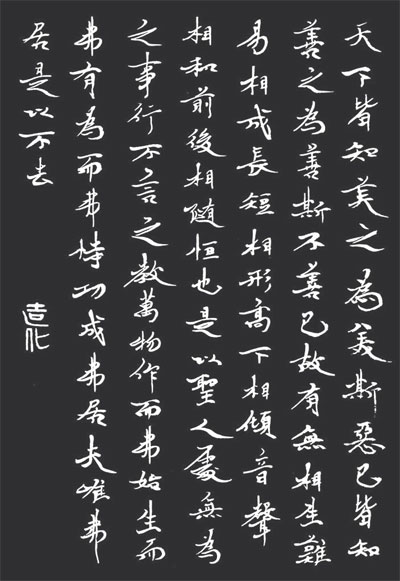 天下皆知美之為美斯惡已皆知
善之為善斯不善已故有無相生難
易相成長短相形高下相傾音聲
相和前後相隨恒也是以聖人處無為
之事行不言之教萬物作而弗始生而
弗有為而弗恃功成弗居夫唯弗
居是以不去
造化